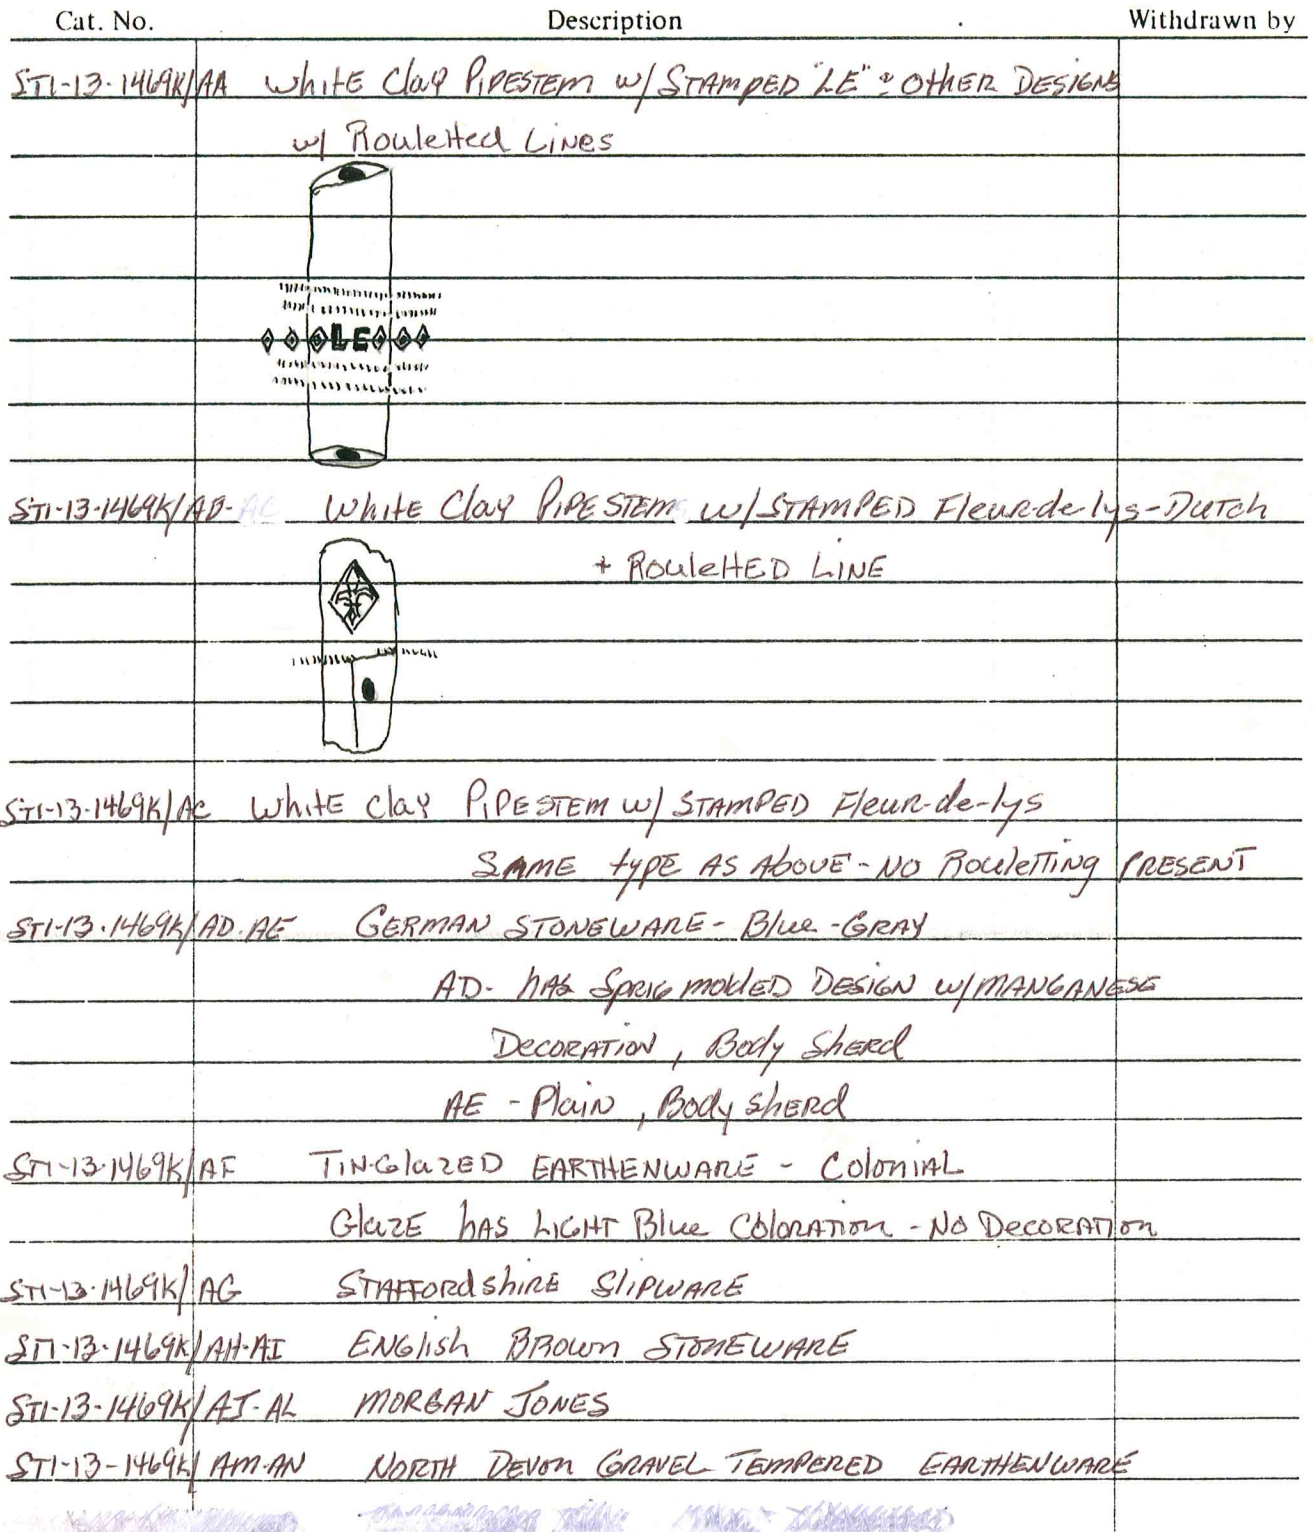 Cat. No. Description Withdrawn by
ST1-13-1469K/AA White Clay Pipestem w/ Stamped "LE" & Other Designs
w/ Rouletted Lines
LE
ST1-13-1469K/AB- White Clay Pipestem w/ Stamped Fleur-de-lys-Dutch
+ Rouletted Line
ST1-13-1469K/AC White Clay Pipestem w/ Stamped Fleur-de-lys
Same type as Above - No Rouletting Present
ST1-13-1469K/AD-AE German Stoneware - Blue-Gray
AD- has Sprig molded Design w/ Manganese
Decoration, Body Sherd
AE - Plain, Body Sherd
ST1-13-1469K/AF Tin-Glazed Earthenware - Colonial
Glaze has Light Blue Coloration - No Decoration
ST1-13-1469K/AG Staffordshire Slipware
ST1-13-1469K/AH-AI English Brown Stoneware
ST1-13-1469K/AJ-AL Morgan Jones
ST1-13-1469K/AM-AN North Devon Gravel Tempered Earthenware